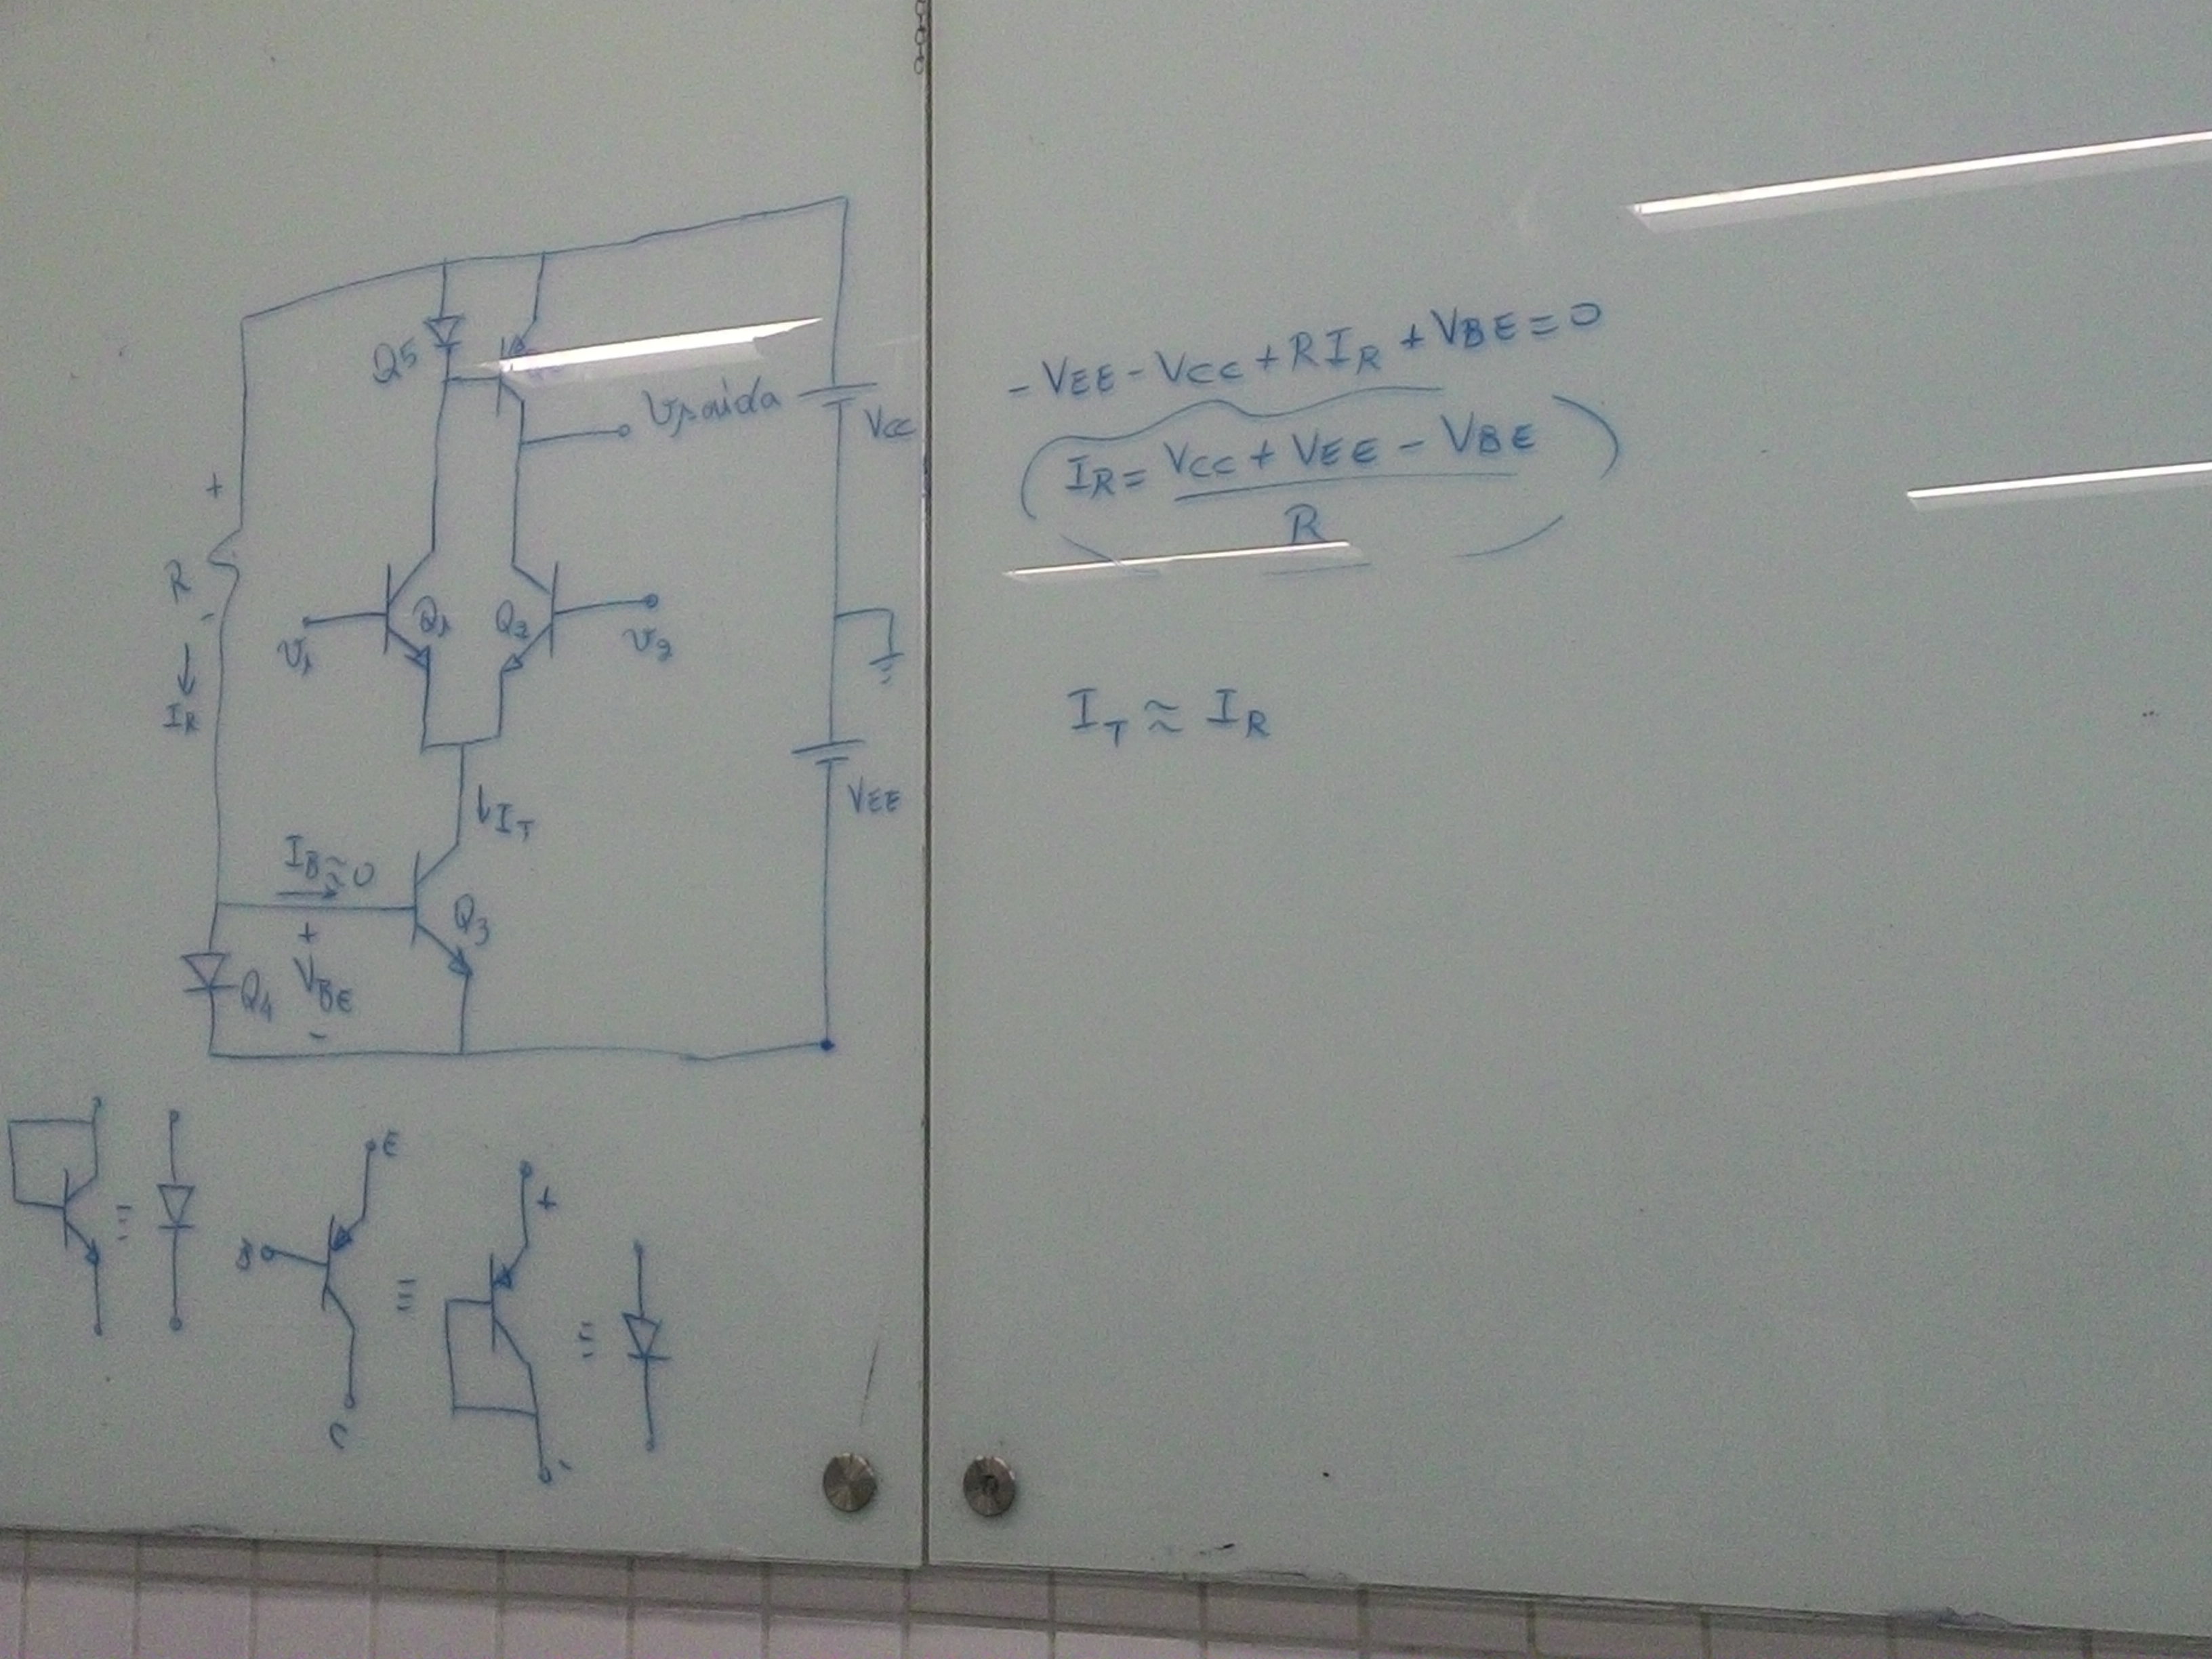 Q5
Vsaida
VCC
+
R
-
IR
v1
Q1
Q2
v2
IT
VEE
IB≈0
Q3
+
VBE
-
Q4
≡
E
B
C
≡
+
-
≡
-VEE-VCC+RIR+VBE=0
IR=VCC+VEE-VBE
R
IT≈IR